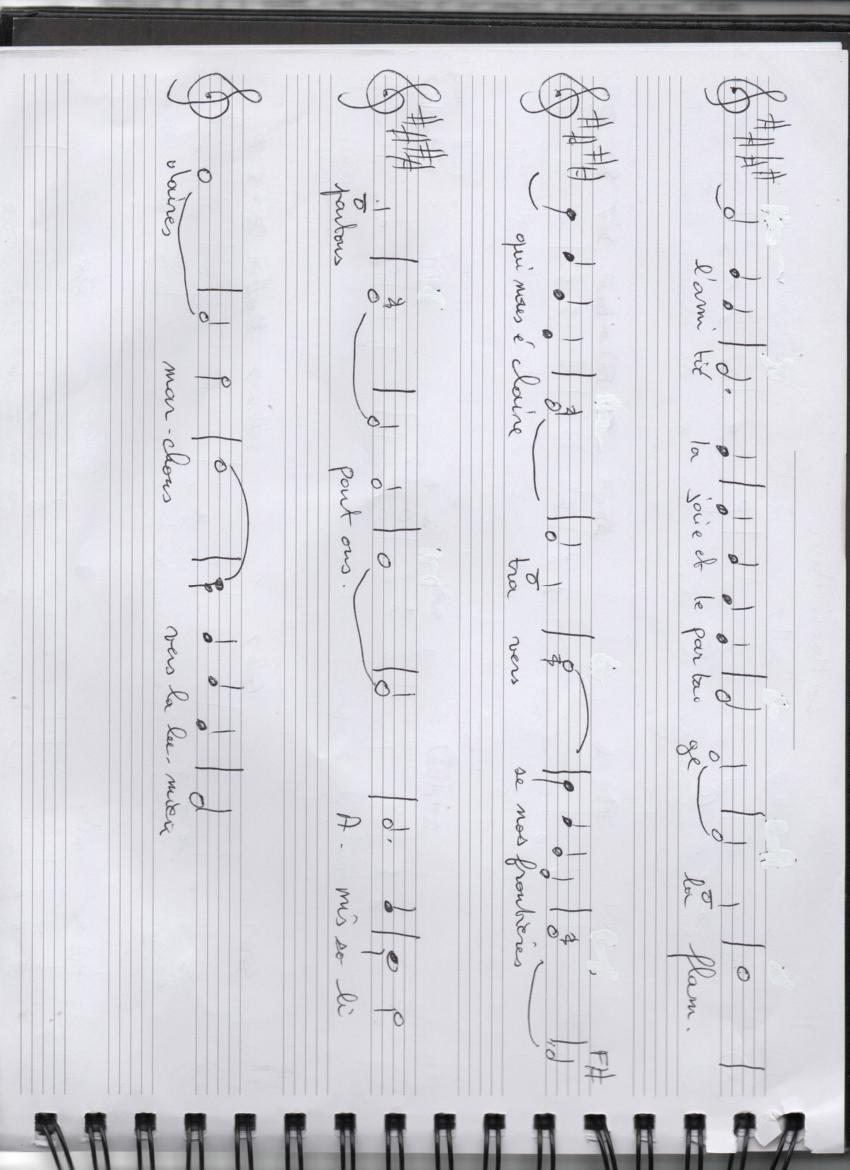 l'ami tié la joie et le par ta ge la flam.
qui nous é claire tra vers se nos frontières
F#
partons partons. A. mis so li
daires mar-chons vers la lu-mière